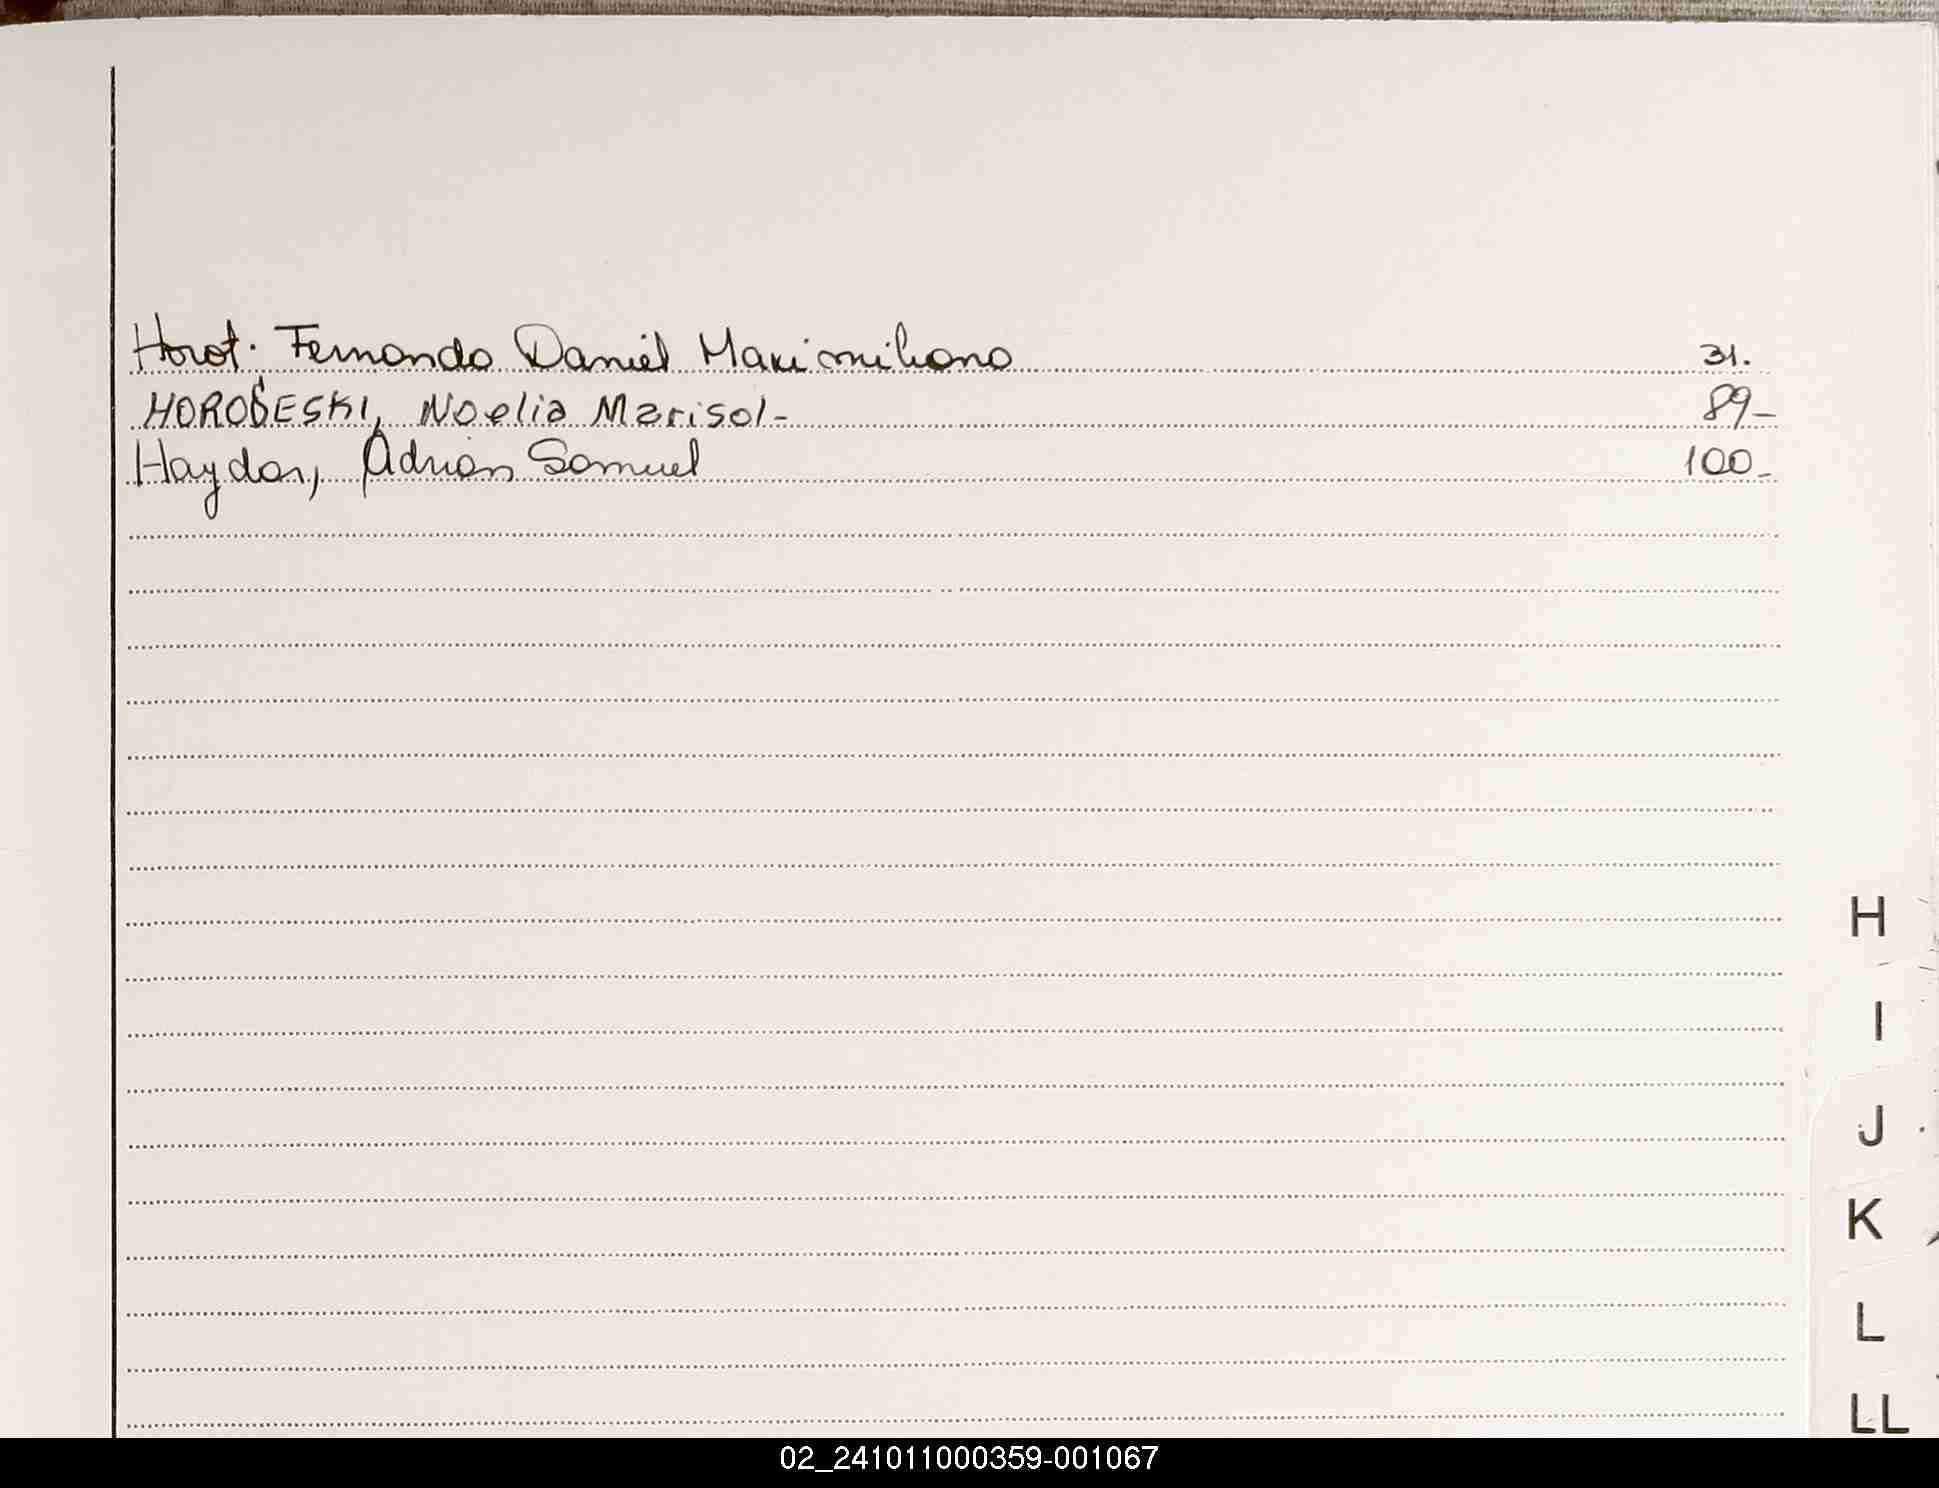 Horot. Fernando Daniel Maximiliano 31.
HOROŚESKI, Noelia Marisol- 89-
Haydar, Adrian Samuel 100-
H
I
J
K
L
LL
02_241011000359-001067